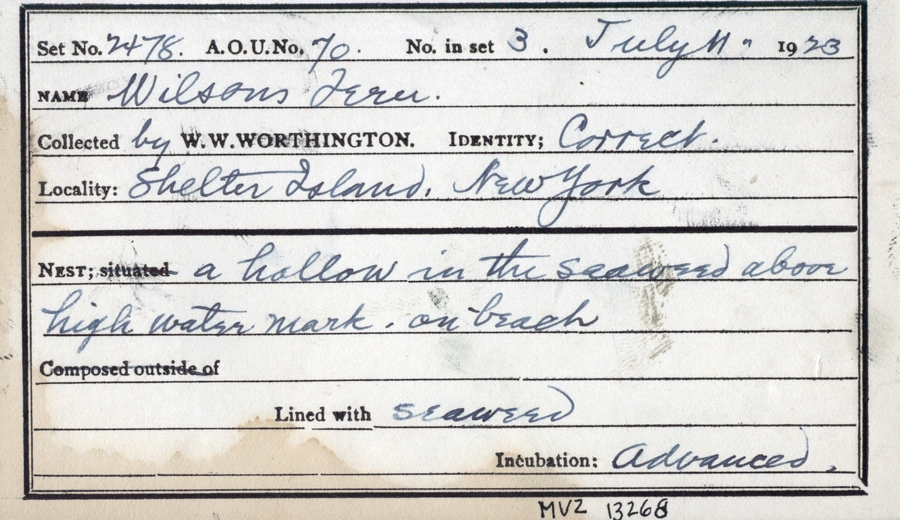 Set No. 2478. A.O.U. No. 70. No. in set 3. July 11. 1923
NAME Wilsons Tern.
Collected by W.W.WORTHINGTON. IDENTITY; Correct.
Locality: Shelter Island, New York
NEST; situated a hollow in the seaweed above
high water mark. on beach
Composed outside of
Lined with seaweed
Incubation: Advanced.
MVZ 13268